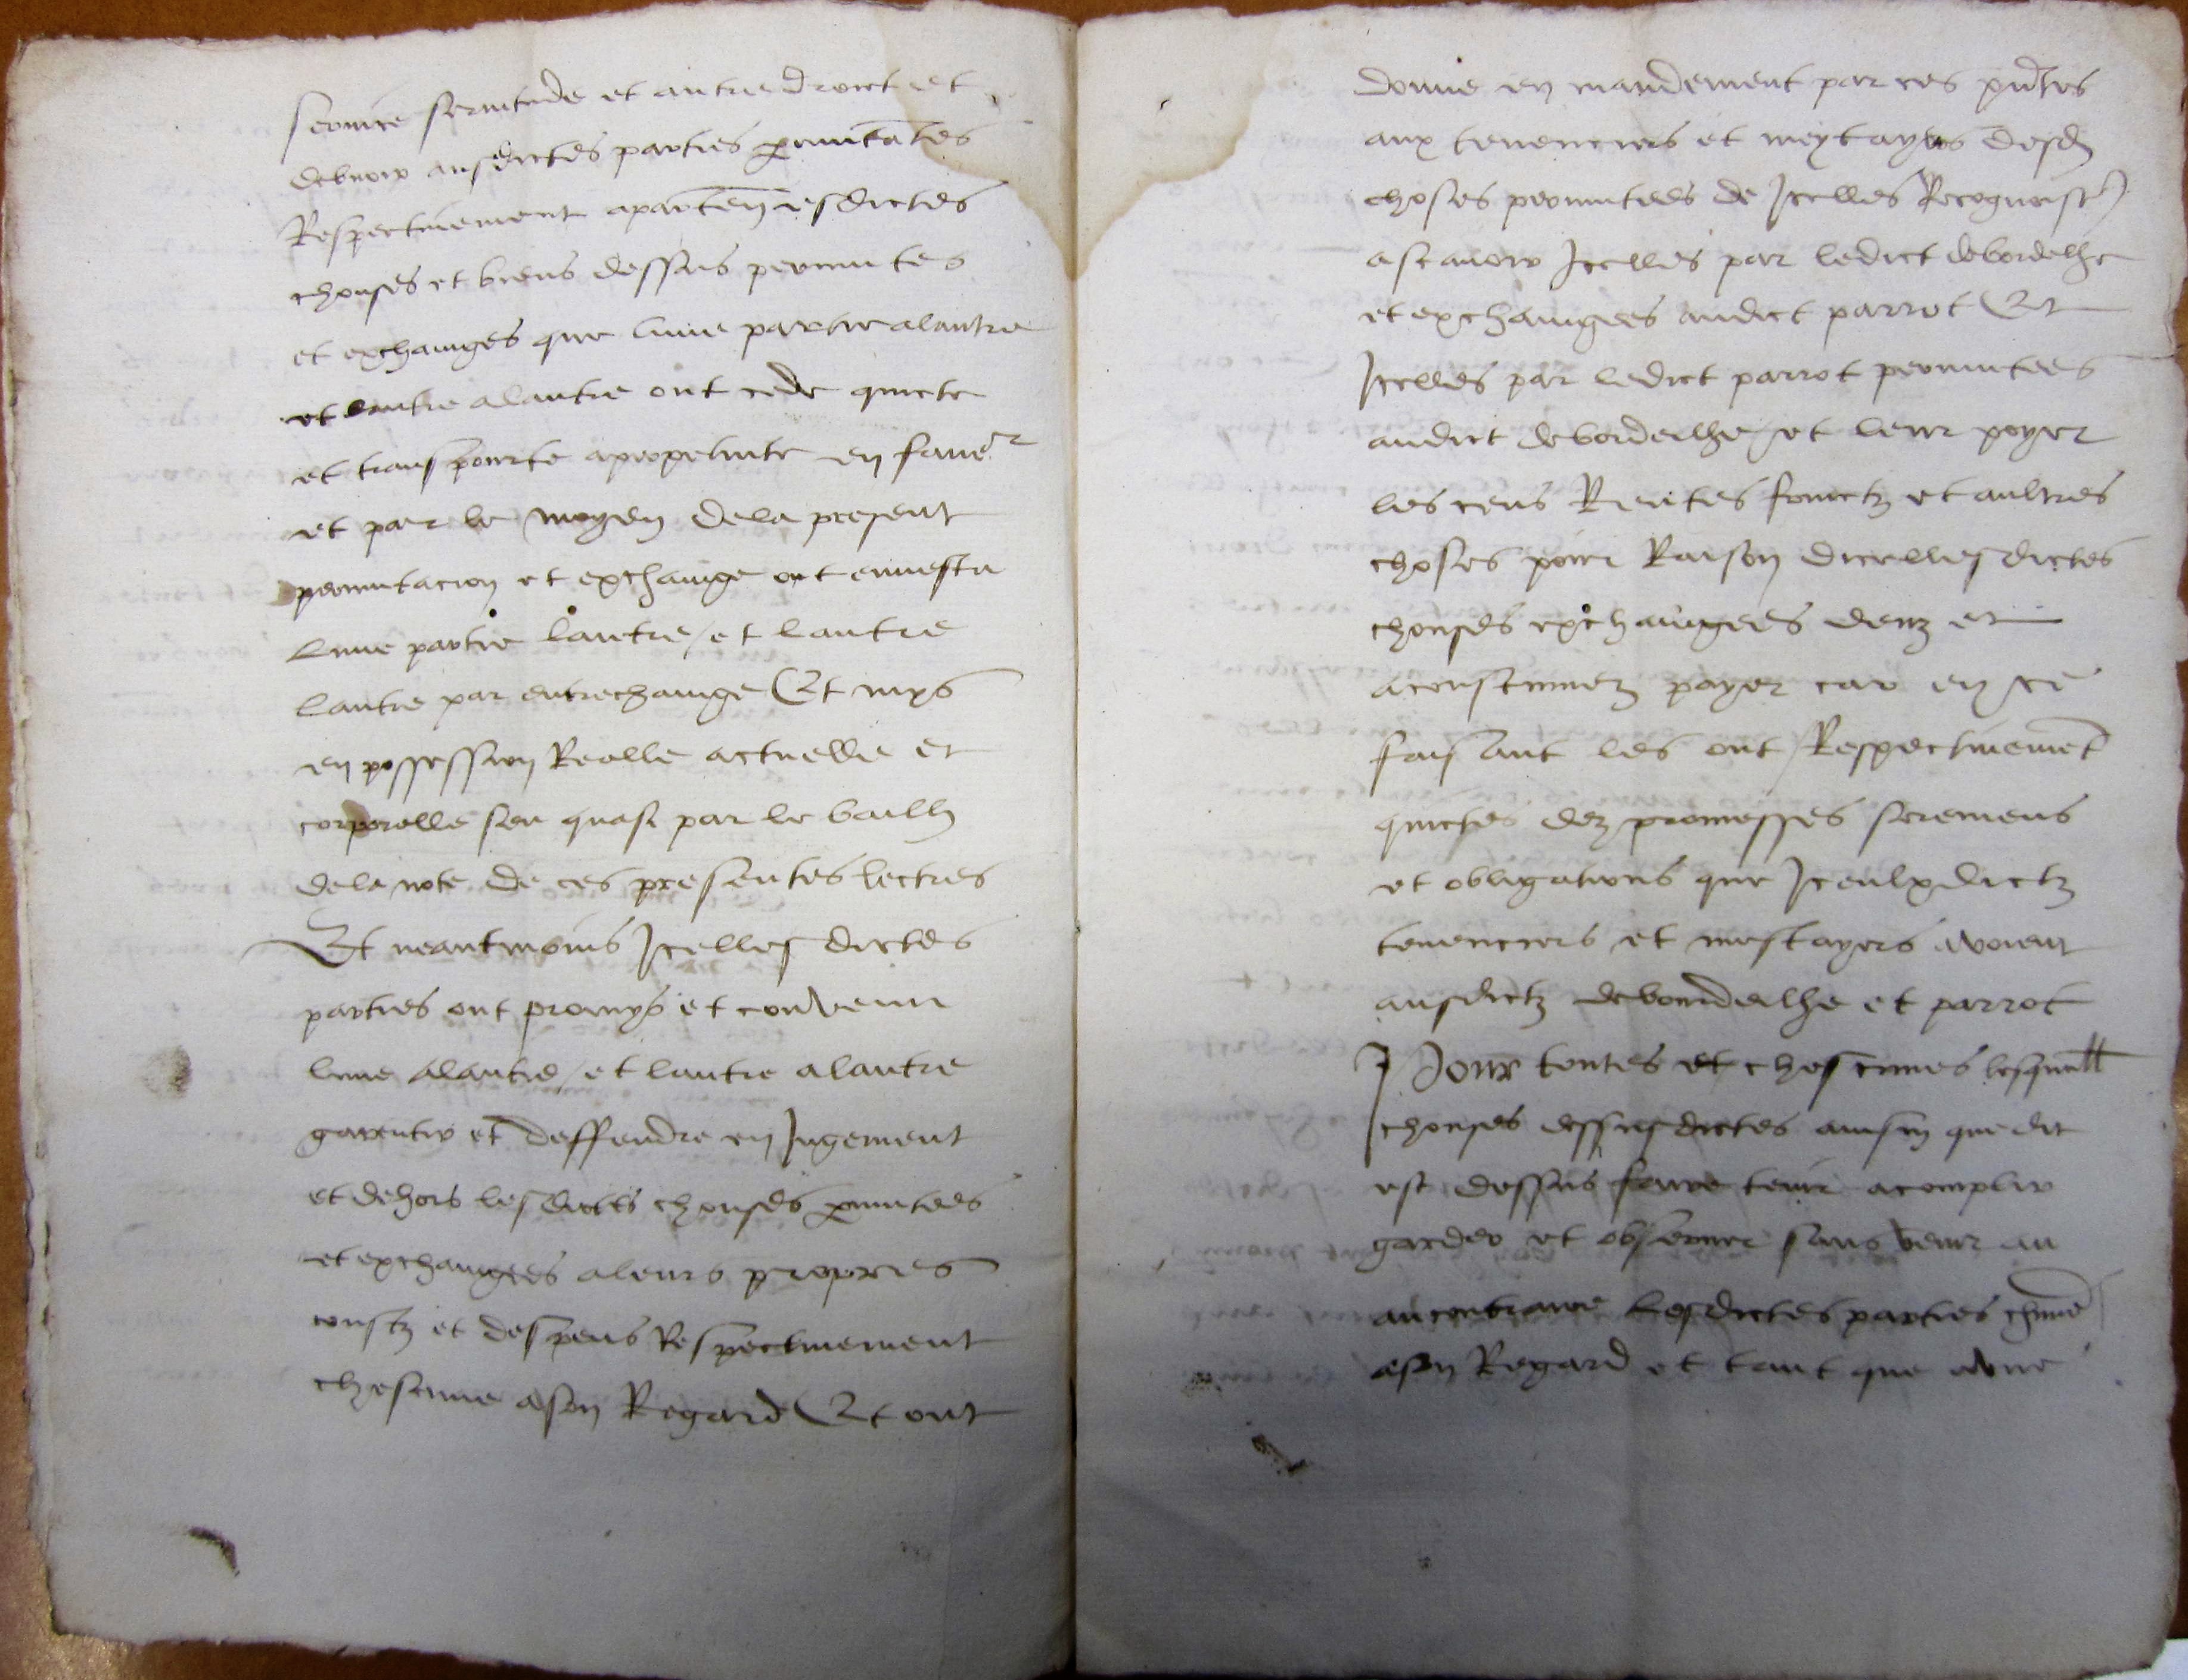 service servitude et autre droict et
debvoir ausdictes parties permutãtes
Respectivement aparten esdictes
chouses et biens dessus permutes
et exchanges que lune partie alautre
et lautre alautre ont cede quicte
et transpourte apropriete en faver
et par le moyen dela present
permutacion et exchange ont envestu
lune partie lautre / et lautre
lautre par entrechange Et mys
en possession Realle actuelle et
corporelle seu quasi par le bailh
dela note de ces presentes lectres
Et neantmoins Icelles dictes
parties ont promys et convenu
lune alautre / et lautre alautre
garentir et deffendre en Jugement
et dehors lesdictes chouses permutees
et exchangees aleurs propres
coustz et despens Respectivement
chescune ason Regard Et ont
donne en mandement par ces pñtes
aux tenenciers et meytayers desd
choses permutees de Icelles Recognoistr
ascavoir Icelles par ledict debordelhe
et exchangees audict parrot Et
Icelles par ledict parrot permutees
audict debordeilhe / et leur poyer
les cens Rentes fruictz et aultres
choses pour Raison dicelles dictes
chouses exchangees deuz et
acoustumez payer car en ce
faisant les ont Respectivemet
quictes dez promesses seremens
et obligations que Iceulx dictz
tenenciers et mestayers avoient
ausdictz debourdeilhe et parrot
Pour toutes et chescunes lesquell
chouses dessusdictes ainsin que dit
est dessus faire tenir acomplir
garder et observer sans venir au
aucontraire Lesdictes parties chune
ason Regard et tant que une